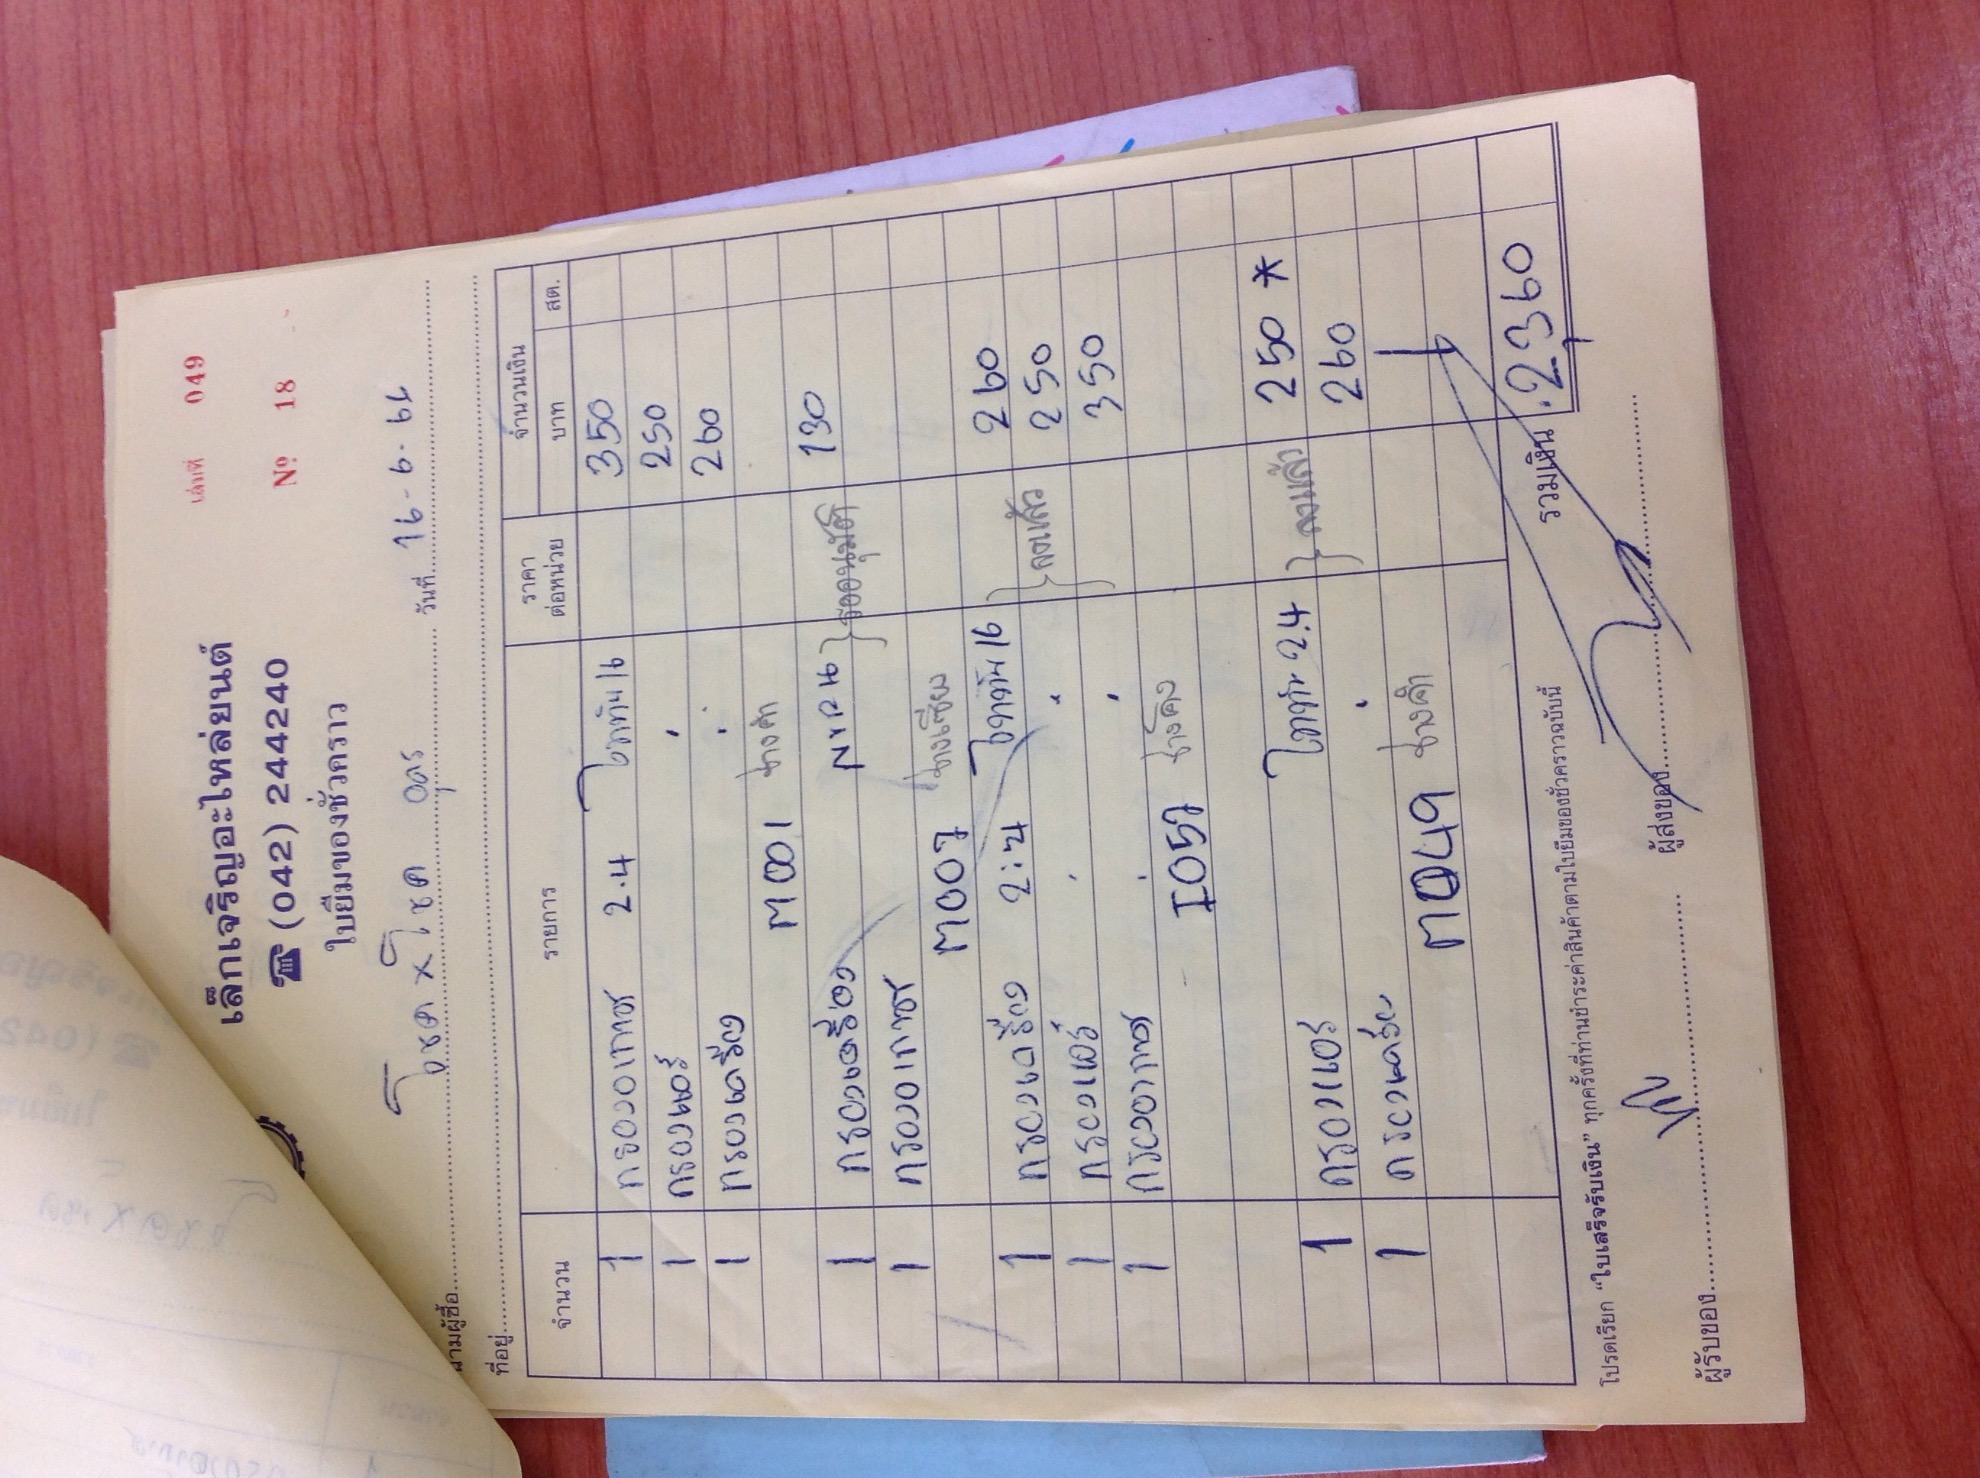 เล่มที่ 049
เล็กเจริญอะไหล่ยนต์
☎ (042) 244240
Nº 18
ใบยืมของชั่วคราว
นามผู้ซื้อ โชค x โชค อุดร วันที่ 16-6-66
ที่อยู่
จำนวน รายการ ราคาต่อหน่วย จำนวนเงิน
บาท สต.
1 กรองโซล่า 2.4 350
1 กรองแอร์ " 250
1 กรองเครื่อง " 260
M001 ช่างคำ
1 กรองเครื่อง 130
1 กรอง รออนุมัติ
M007 ช่างเซียง
1 กรองเครื่อง 2.4 260
1 กรองแอร์ " 250 ลงแล้ว
1 กรอง " 350
I057 ช่างโคง
1 กรองแอร์ 2.4 250 *
1 กรองเครื่อง " 260 ลงแล้ว
M049 ช่างคำ
รวมเงิน 2,360
โปรดเรียก "ใบเสร็จรับเงิน" ทุกครั้งที่ท่านชำระค่าสินค้าตามใบยืมของชั่วคราวฉบับนี้
ผู้รับของ ผู้ส่งของ